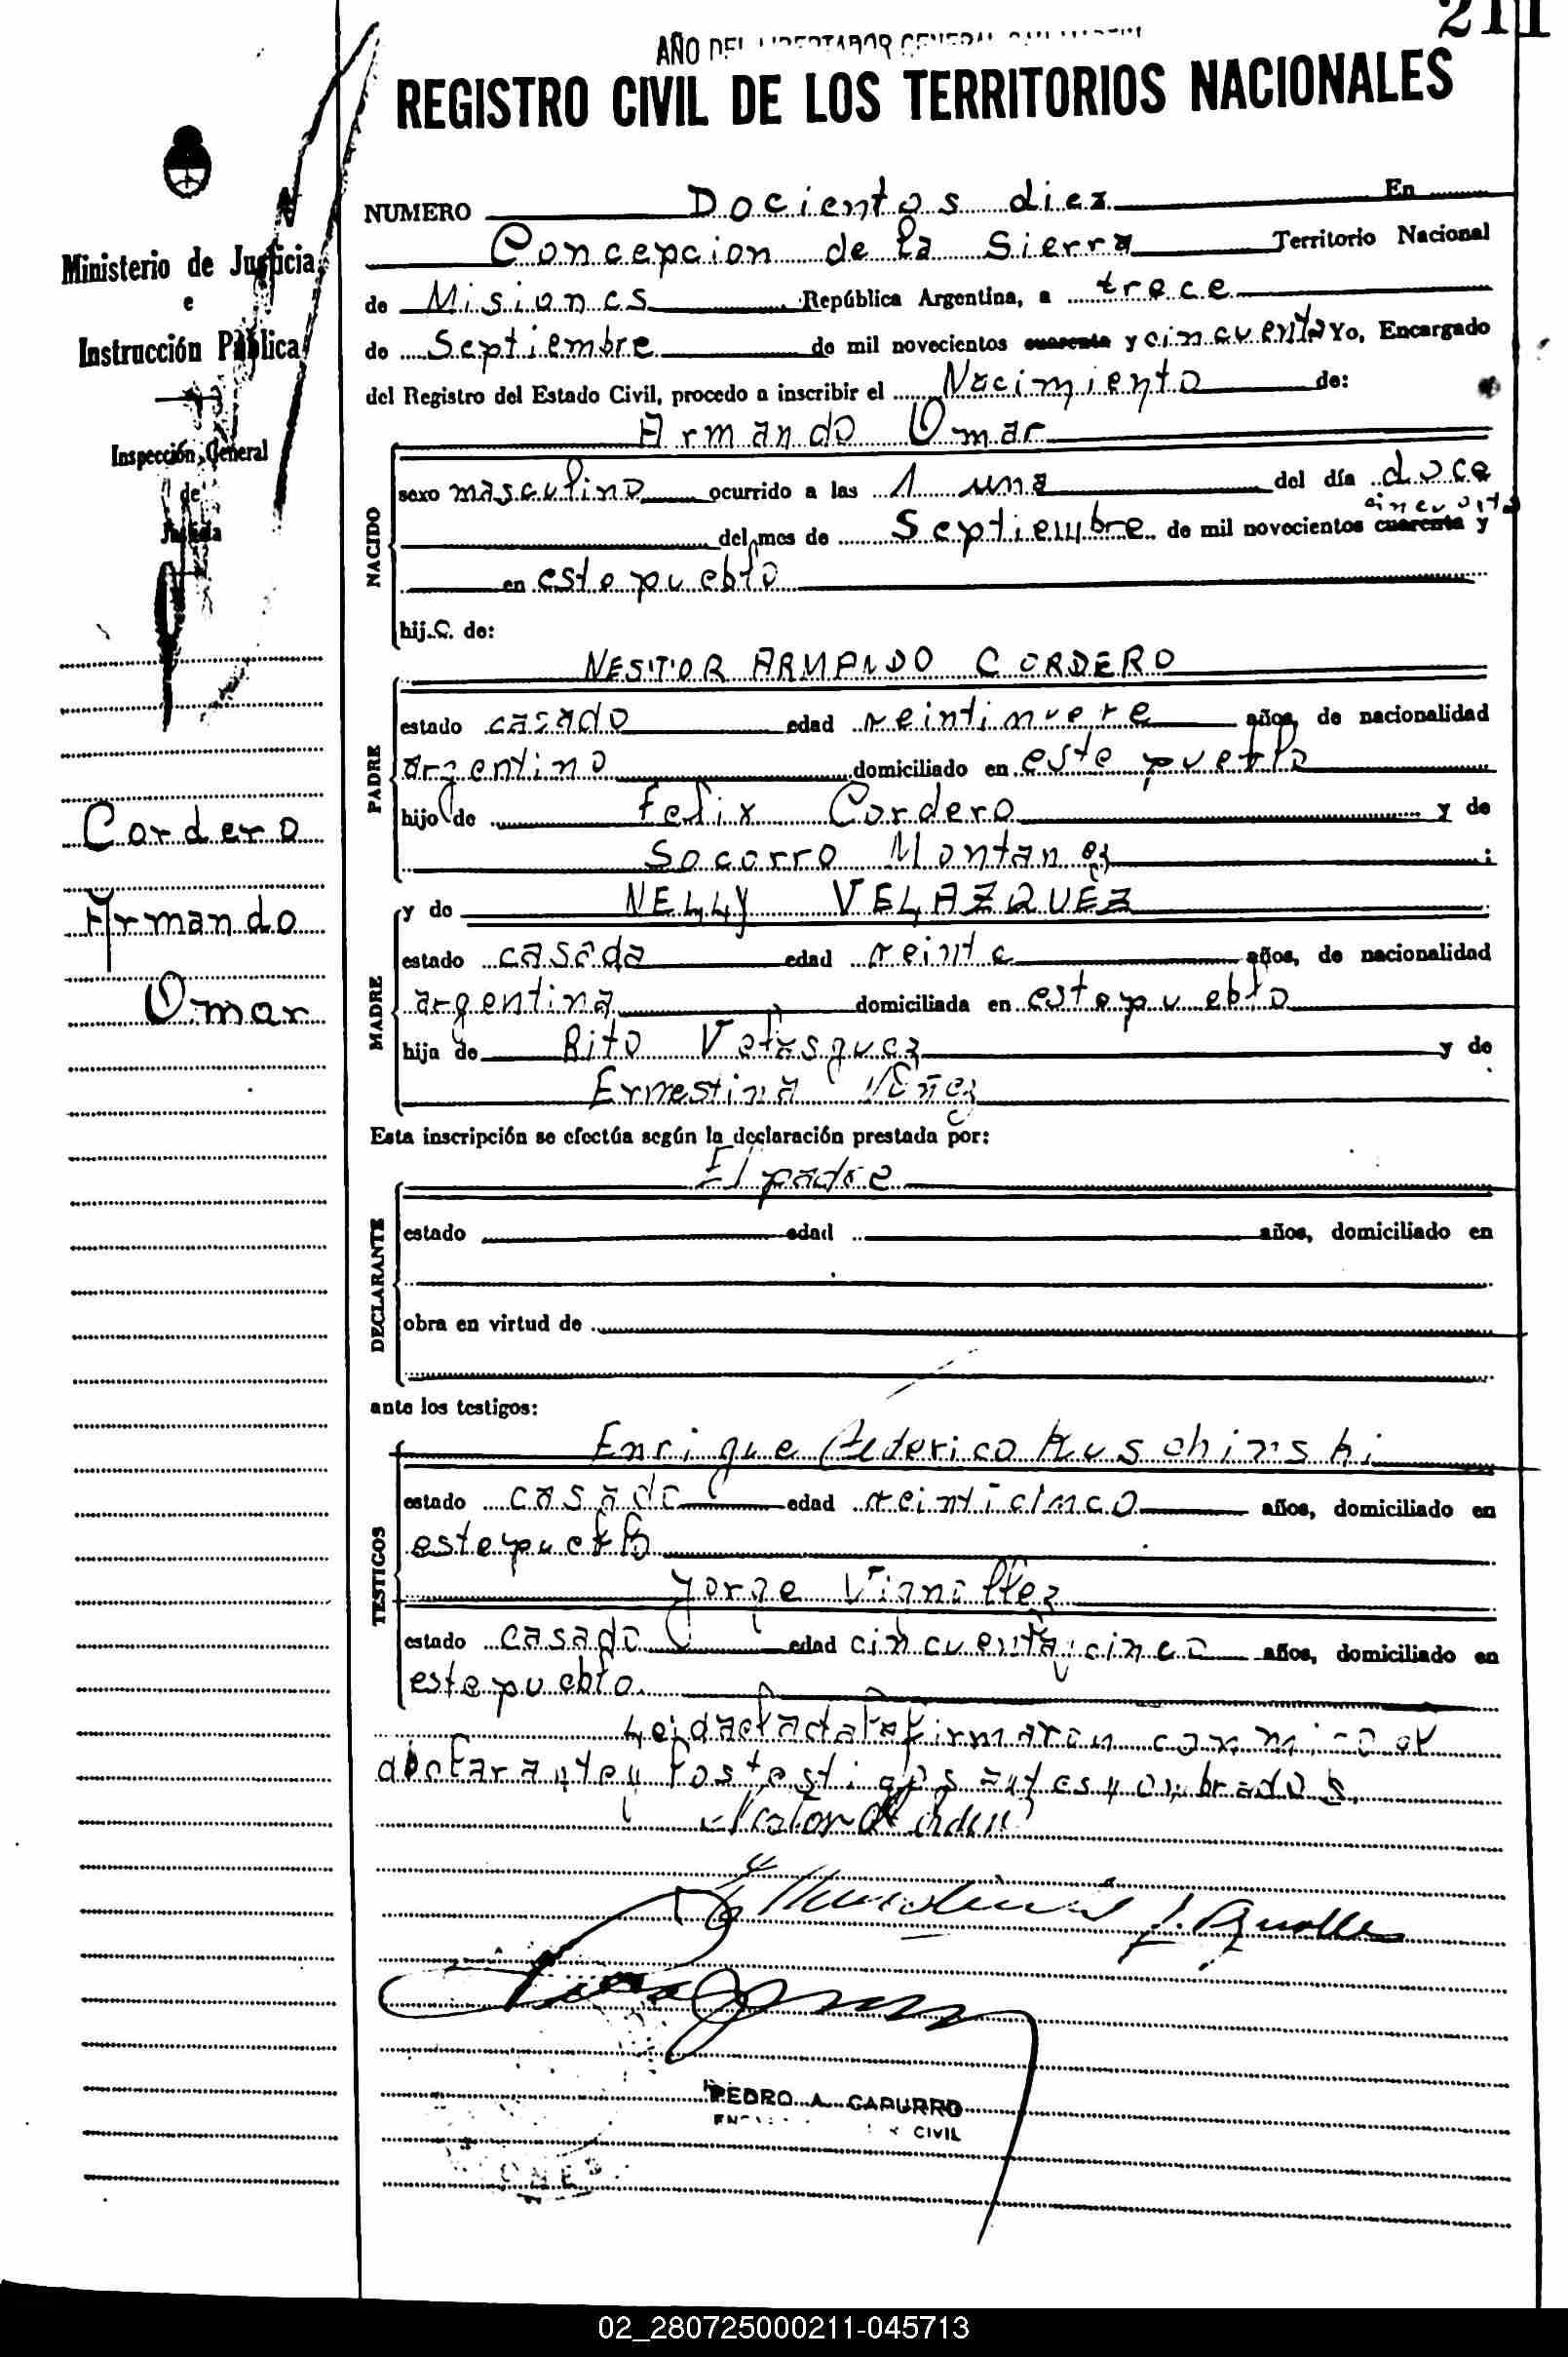 211
AÑO DEL LIBERTADOR GENERAL SAN MARTIN
REGISTRO CIVIL DE LOS TERRITORIOS NACIONALES
Ministerio de Justicia
e
Instrucción Pública
Inspección General
de
Justicia
Cordero
Armando
Omar
NUMERO Docientos diez En
Concepcion de la Sierra Territorio Nacional
de Misiones República Argentina, a trece
de Septiembre de mil novecientos cuarenta y cincuenta Yo, Encargado
del Registro del Estado Civil, procedo a inscribir el Nacimiento de:
Armando Omar
NACIDO
sexo masculino ocurrido a las 1 una del día doce
cincuenta
del mes de Septiembre de mil novecientos cuarenta y
en este pueblo
hijo de:
NESTOR ARMANDO CORDERO
PADRE
estado casado edad veintinueve años, de nacionalidad
argentino domiciliado en este pueblo
hijo de Felix Cordero y de
Socorro Montanez ;
y de NELLY VELAZQUEZ
MADRE
estado casada edad treinta años, de nacionalidad
argentina domiciliada en este pueblo
hija de Rito Velasquez y de
Ernestina Nuñez
Esta inscripción se efectúa según la declaración prestada por:
El padre
DECLARANTE
estado edad años, domiciliado en
obra en virtud de
ante los testigos:
Enrique Federico Kuschinski
TESTIGOS
estado casado edad veinticinco años, domiciliado en
este pueblo
Jorge
estado casado edad cincuenta y cinco años, domiciliado en
este pueblo.
Leida el acta la firmaron conmigo el
declarante y los testigos antes nombrados.
PEDRO A. CAPURRO
CIVIL
02_280725000211-045713